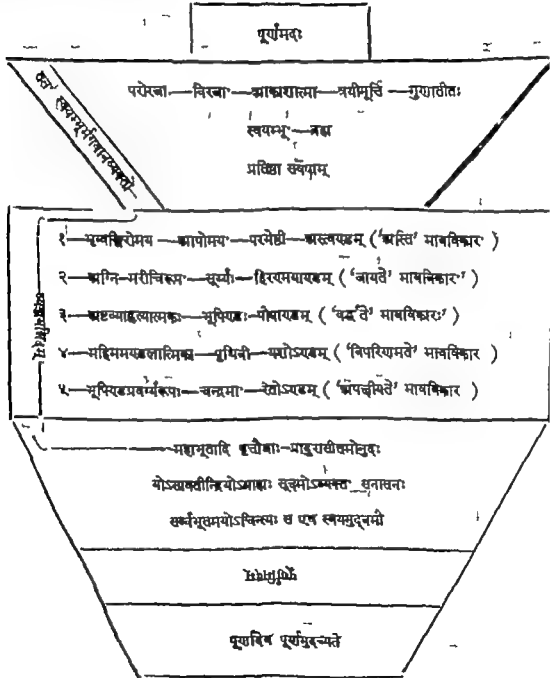 पूर्णमदः
ततः स्वयम्भूर्भगवानव्यक्तो
परोरजा—विरजा—आकाशात्मा—त्रयीमूर्ति—गुणातीतः
स्वयम्भू—ब्रह्म
प्रतिष्ठा
१—भृग्वङ्गिरोमय—आपोमय—परमेष्ठी—अस्त्वण्डम् ('अस्ति' भावविकार)
२—अग्नि-मरीचिरूप—सूर्य्यः—हिरण्मयाण्डम् ('जायते' भावविकार)
३—अष्टव्याहृत्यात्मकः—भूपिण्डः—पोषाण्डम् ('वर्द्धते' भावविकारः)
४—महिममण्डलात्मिका—पृथिवी—यशोऽण्डम् ('विपरिणमते' भावविकार)
५—भूपिण्डप्रवर्ग्यरूपः—चन्द्रमा—रेतोऽण्डम् ('अपक्षीयते' भावविकार)
महाभूतादि वृत्तौजाः—प्रादुरासीत्तमोनुदः
योऽसावतीन्द्रियोऽग्राह्यः सूक्ष्मोऽव्यक्त सनातनः
सर्व्वभूतमयोऽचिन्त्यः स एष स्वयमुद्बभौ
पूर्णमिदम्
पूर्णात् पूर्णमुदच्यते